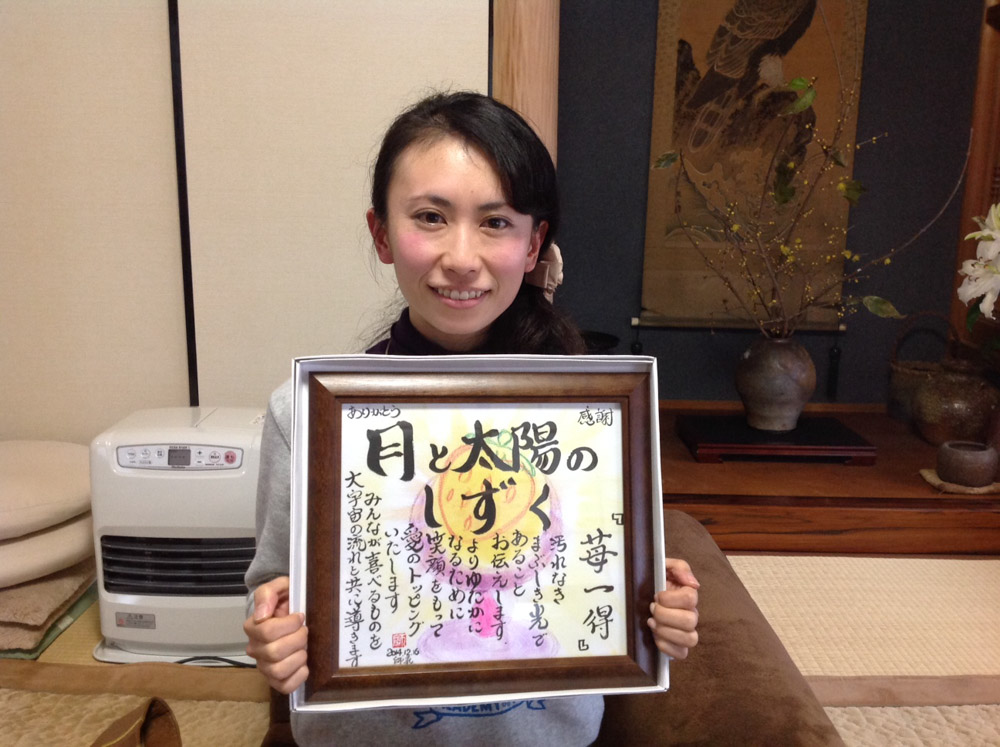 ありがとう
感謝
月と太陽の
しずく
『苺一得』
汚れなき
まぶしき光で
あること
お伝えします
よりゆたかに
なるために
笑顔をもって
愛のトッピング
いたします
みんなが喜べるものを
大宇宙の流れと共に導きます
2014.12.6